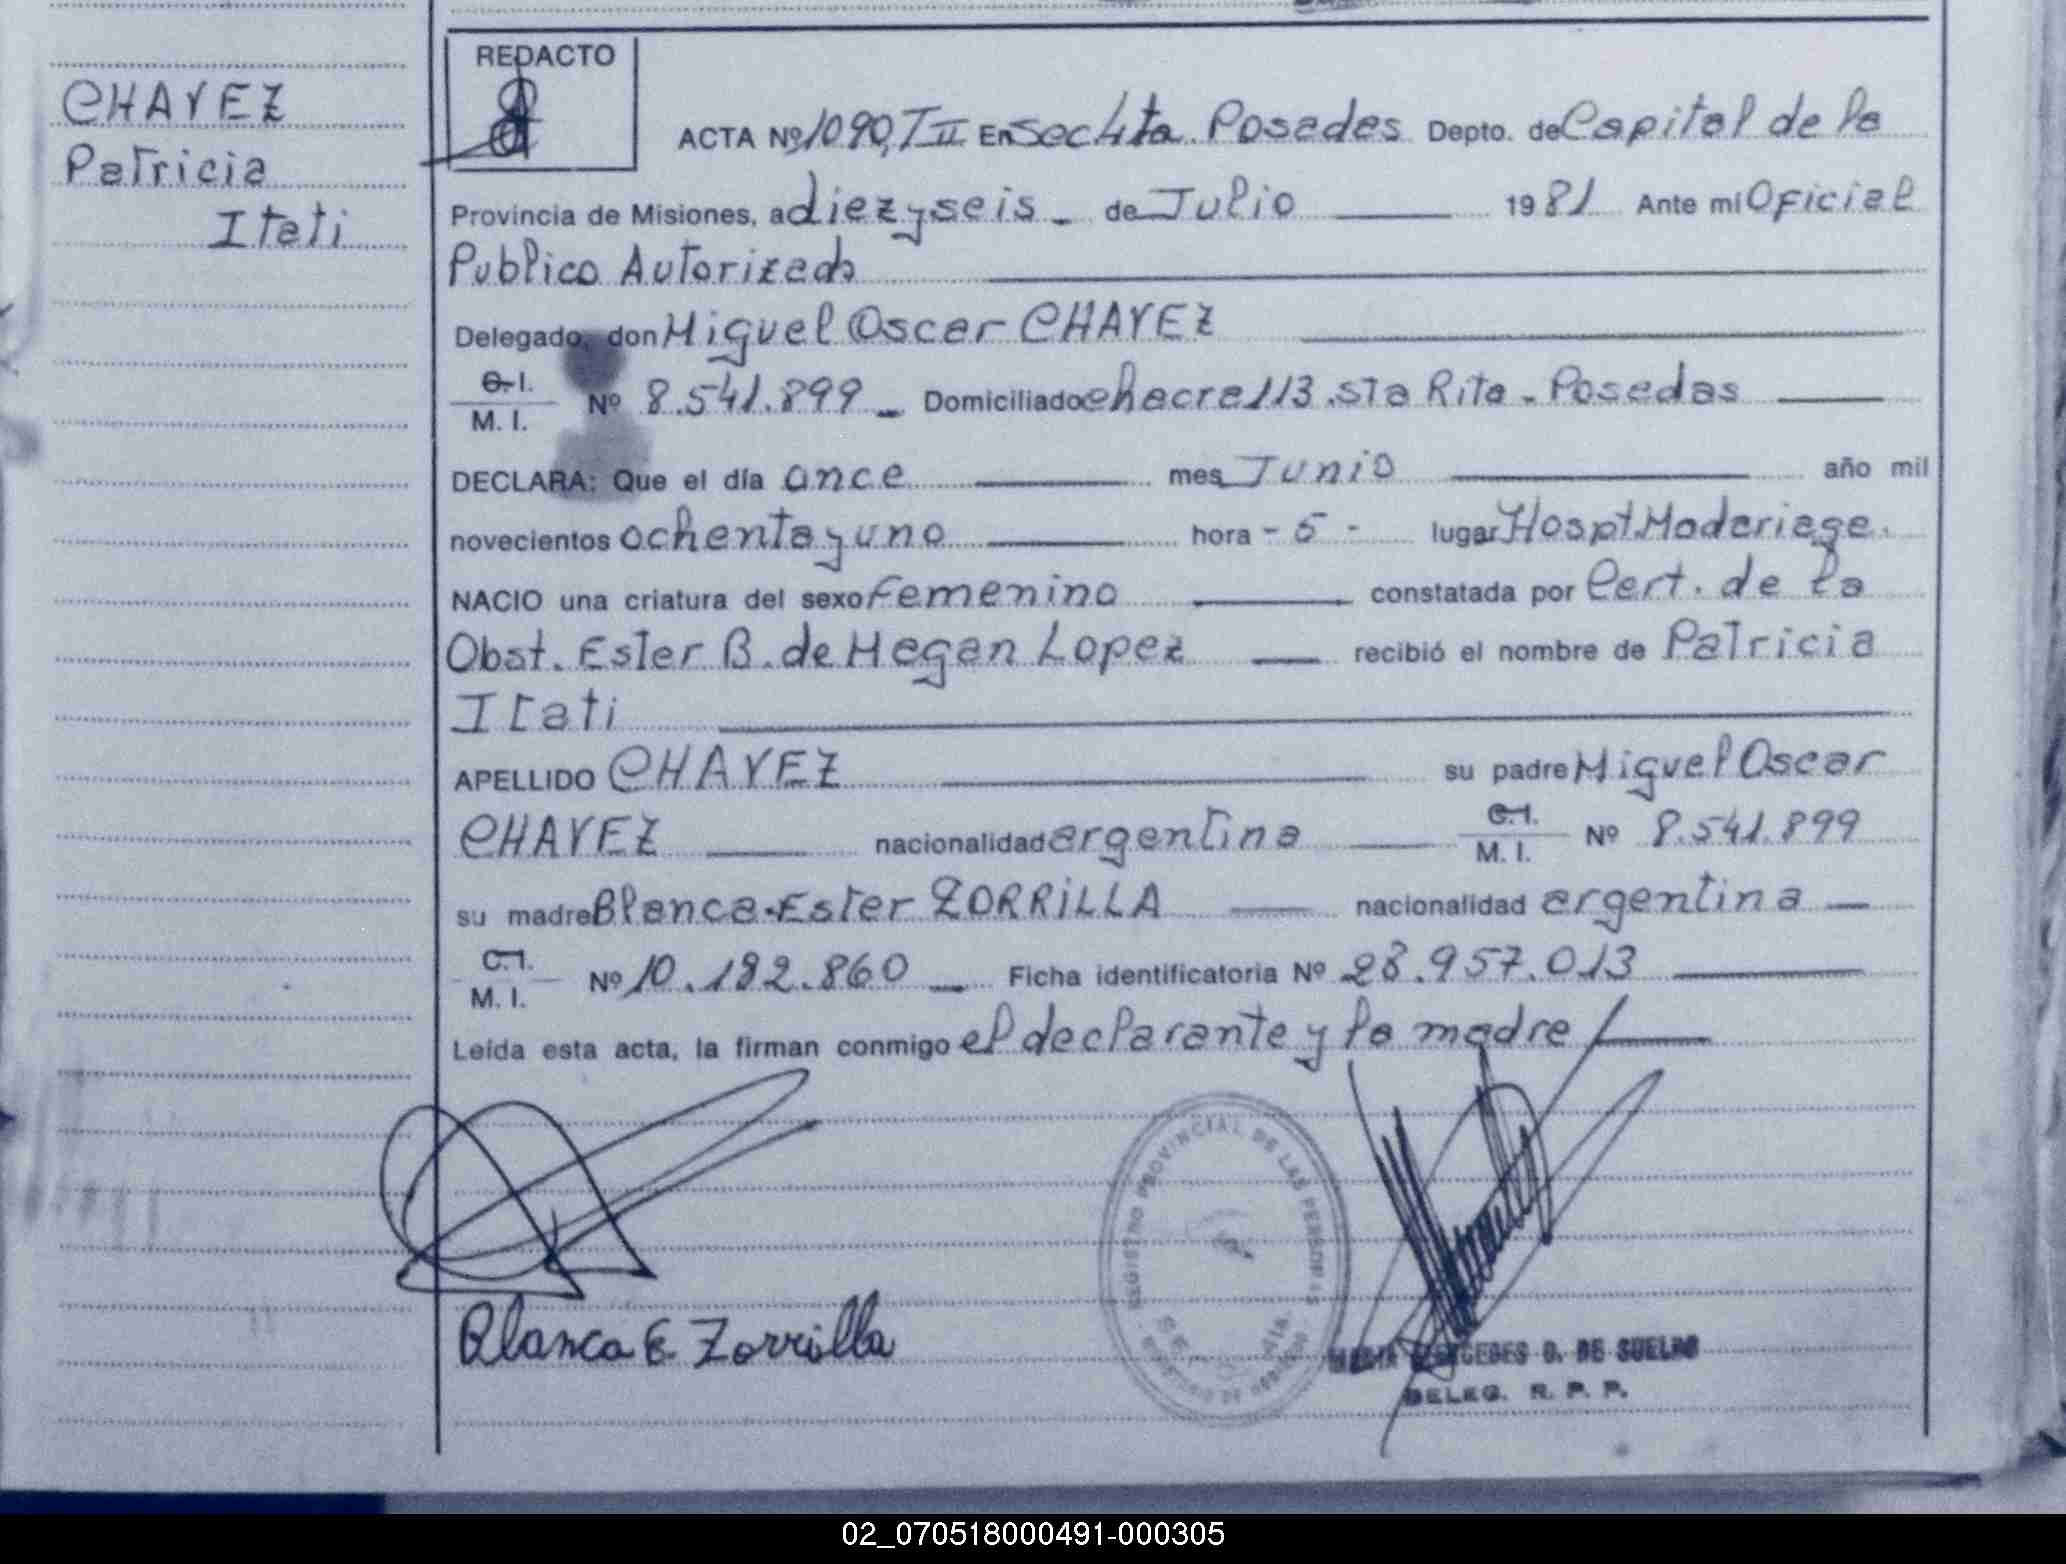 CHAVEZ
Patricia
Itati
REDACTO
ACTA Nº 1090, T II En Sec 4ta. Posadas Depto. de Capital de la
Provincia de Misiones, a diez y seis - de Julio 1981 Ante mí Oficial
Publico Autorizado
Delegado, don Miguel Oscar CHAVEZ
C. I.
M. I. Nº 8.541.899 - Domiciliado chacra 113. Sta Rita - Posadas
DECLARA: Que el día once mes Junio año mil
novecientos ochenta y uno hora - 5 - lugar Hospt. Madariaga.
NACIO una criatura del sexo femenino constatada por Cert. de la
Obst. Ester B. de Hegan Lopez recibió el nombre de Patricia
Itati
APELLIDO CHAVEZ su padre Miguel Oscar
CHAVEZ nacionalidad argentina C. I. M. I. Nº 8.541.899
su madre Blanca Ester ZORRiLLA nacionalidad argentina
C. I.
M. I. Nº 10.182.860 Ficha identificatoria Nº 28.957.013
Leída esta acta, la firman conmigo el declarante y la madre
Blanca E. Zorrilla
REGISTRO PROVINCIAL DE LAS PERSONAS
MERCEDES D. DE SUELDO
DELEG. R. P. P.
02_070518000491-000305